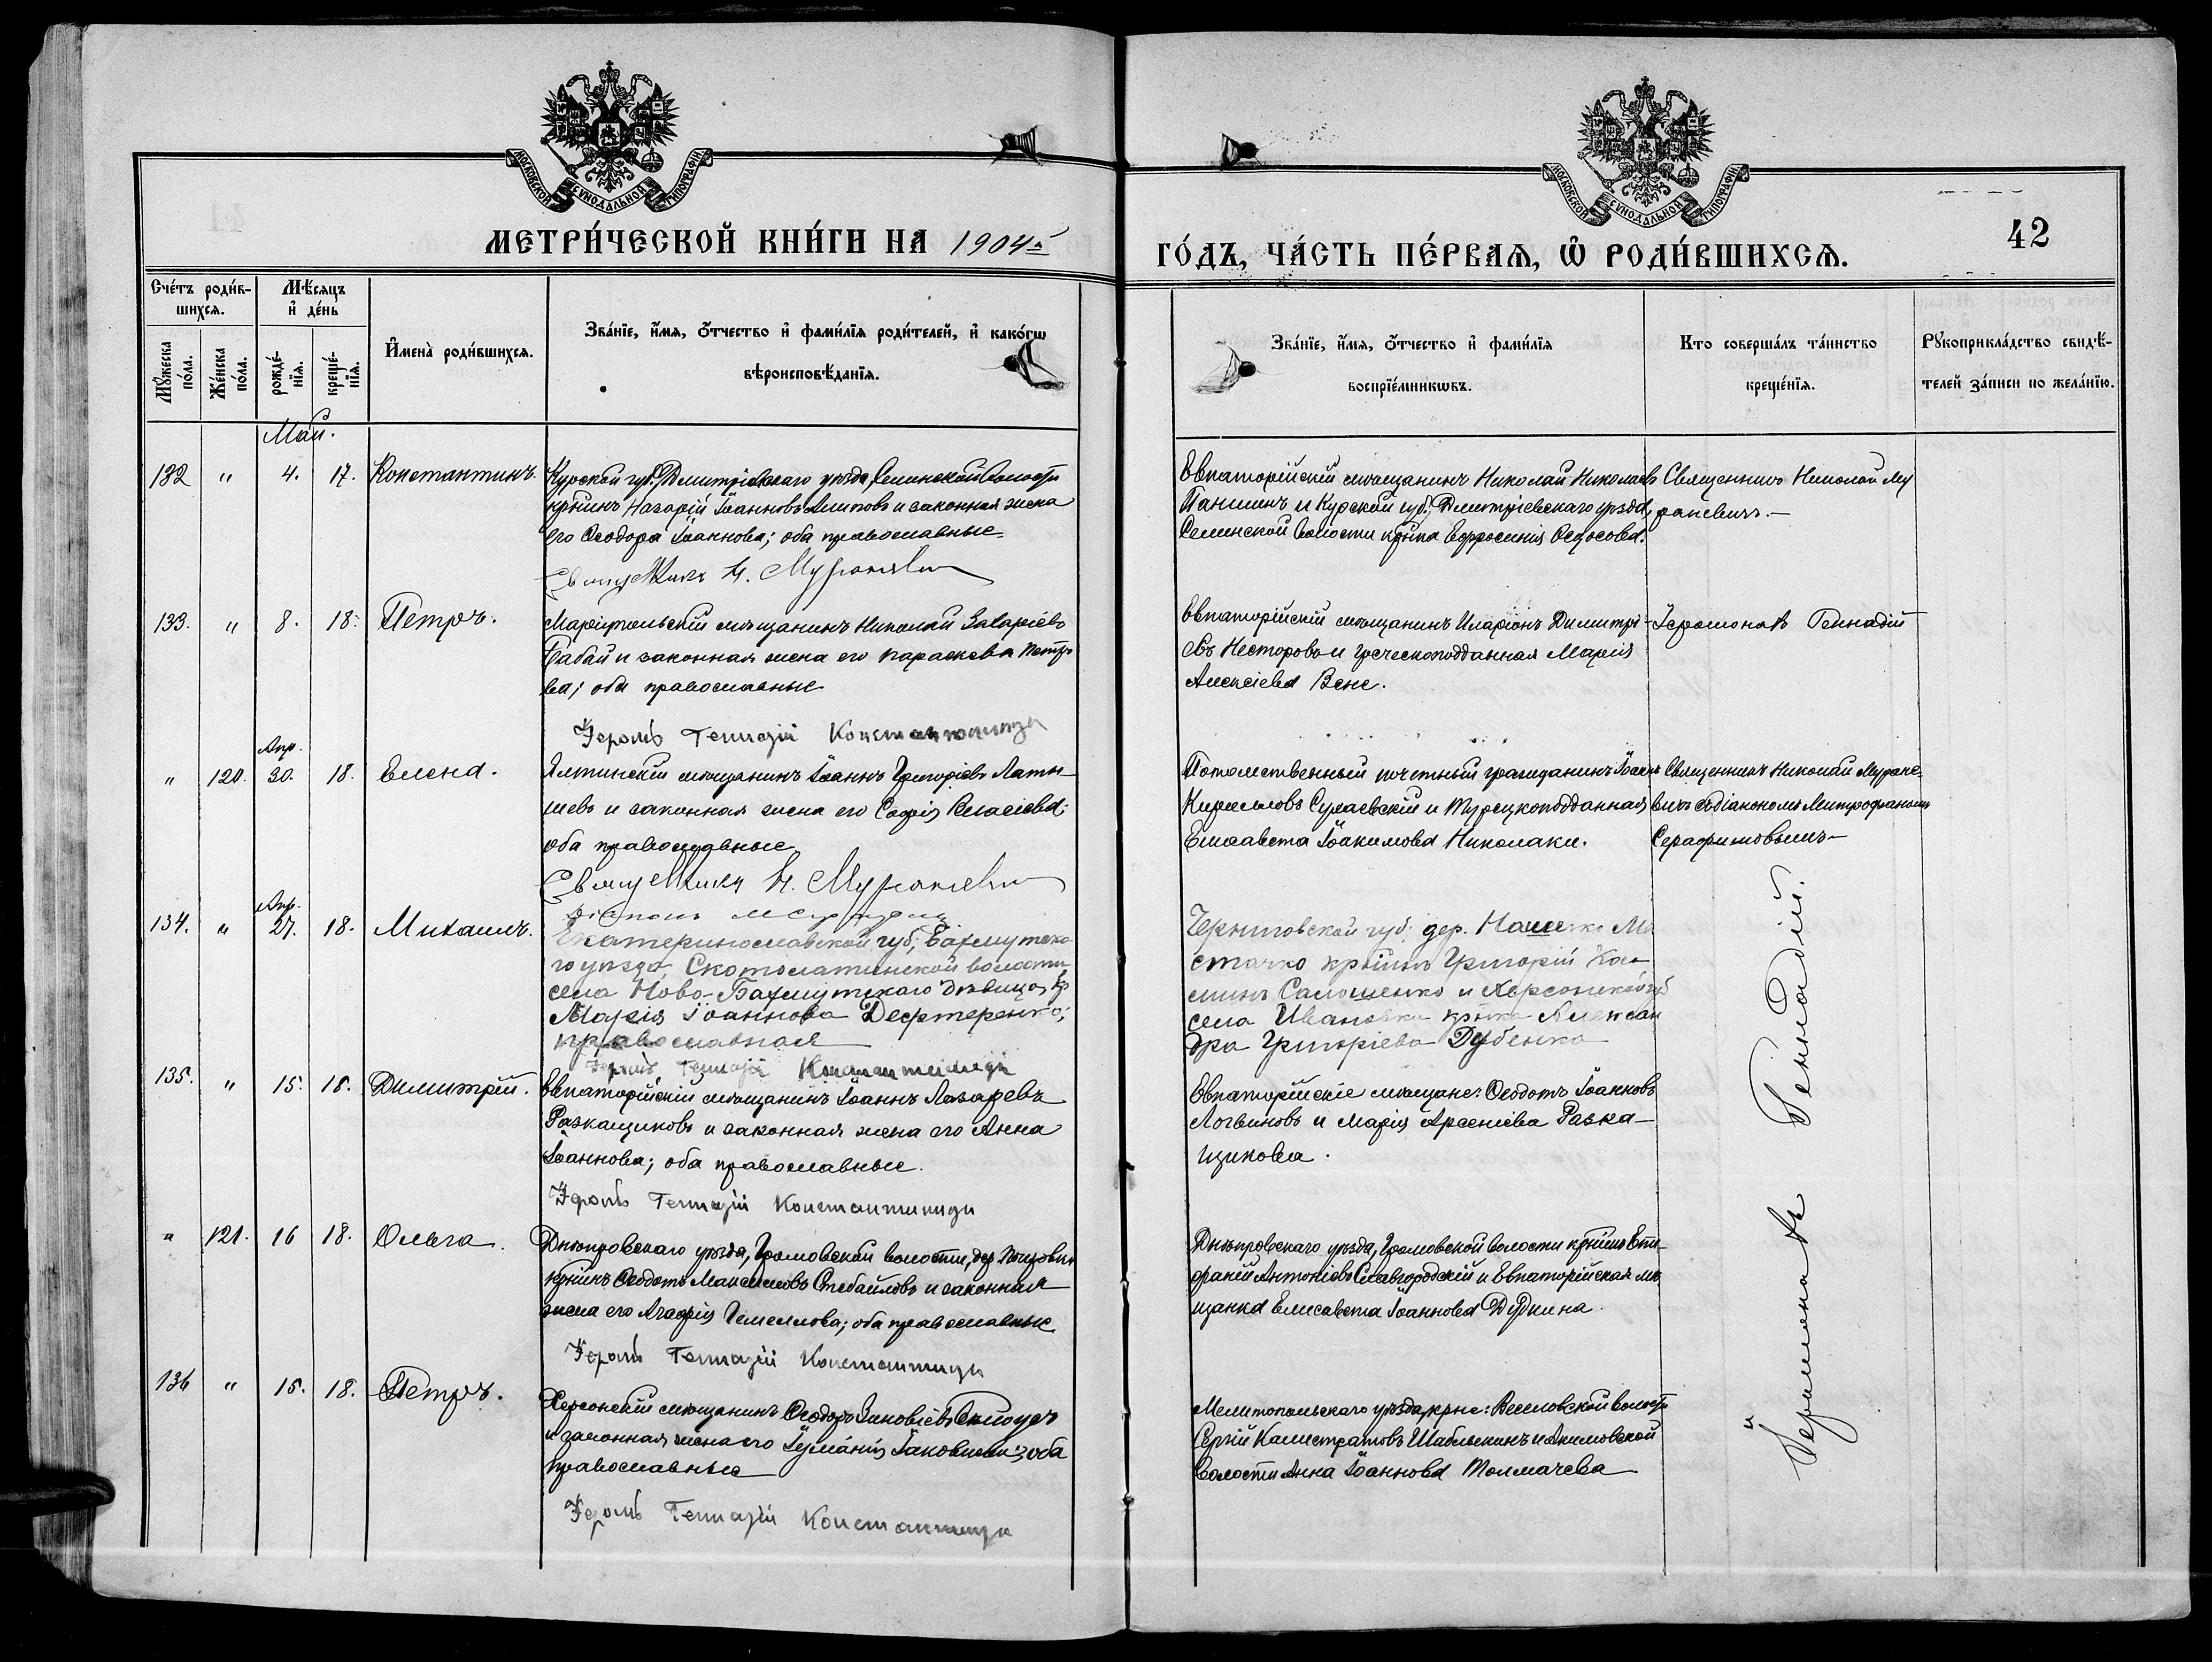 МОСКОВСКОЙ СѴНОДАЛЬНОЙ ТИПОГРАФІИ
МОСКОВСКОЙ СѴНОДАЛЬНОЙ ТИПОГРАФІИ
42
МЕТРИ́ЧЕСКОЙ КНИ́ГИ НА 1904й
ГО́ДЪ, ЧА́СТЬ ПЕ́РВАѦ, Ѡ҆ РОДИ́ВШИХСѦ.
Сче́тъ роди́в-
шихсѧ.
Мѣ́сѧцъ
и҆ де́нь
Мꙋ́жеска по́ла.
Же́нска по́ла.
рожде́-
нїѧ.
креще́-
нїѧ.
И҆мена̀ роди́вшихсѧ.
Зва́нїе, и҆́мѧ, ѻ҆́тчество и҆ фами́лїѧ роди́телей, и҆ како́гѡ
вѣроисповѣ́данїѧ.
Зва́нїе, и҆́мѧ, ѻ҆́тчество и҆ фами́лїѧ
воспрїе́мникѡвъ.
Кто соверша́лъ та́инство
креще́нїѧ.
Рꙋкоприкла́дство свидѣ́-
телей за́писи по жела́нїю.
Май.
132 " 4. 17. Константинъ.
Курской губ., Дмитріевскаго уѣзда, Селинской волости
кр-нинъ Назарій Іоанновъ и законная жена
его Ѳеодора Іоаннова; оба православные
Священникъ Н. Мураневич
Евпаторійскій мѣщанинъ Николай Николаевъ
Паншинъ и Курской губ., Дмитріевскаго уѣзда,
Селинской волости кр-нка Евфросинія Ѳедосова.
Священникъ Николай Му
раневичъ.
133. " 8. 18. Петръ.
Маріупольскій мѣщанинъ Николай Захаріевъ
Бабай и законная жена его Параскева Петро
ва; оба православные
Іером Геннадій Константиниди
Евпаторійскій мѣщанинъ Иларіонъ Димитрі-
евъ Несторовъ и греческоподданная Марія
Алексіева Вене.
Іеромонахъ Геннадій
Апр.
" 120. 30. 18. Елена.
Ялтинскій мѣщанинъ Іоаннъ Григоріевъ Латы-
шевъ и законная жена его Софія Власіева;
оба православные
Священникъ Н. Мураневич
Потомственный почетный гражданинъ Іоаннъ
Кирилловъ Сулаевскій и Турецкоподданная
Елисавета Іоакимова Николаки.
Священникъ Николай Муране-
вичъ съ діакономъ Митрофаномъ
Серафимовымъ
Апр.
134. " 27. 18. Михаилъ.
Екатеринославской губ; Бахмутска-
го уѣзда, Скотоватинской волости
села Ново-Бахмутскаго дѣвица кр
Марія Іоаннова Дефтеренко;
православная
Іером Геннадій Константиниди
Черниговской губ; дер.
кр-нинъ Григорій
и Херсонской губ
села Ивановки кр-нка Алексан
дра Григоріева Дубенко
135. " 15. 18. Димитрій.
Евпаторійскій мѣщанинъ Іоаннъ Лазаревъ
Разкащиковъ и законная жена его Анна
Іоаннова; оба православные.
Іером Геннадій Константиниди
Евпаторійскіе мѣщане: Ѳеодотъ Іоанновъ
Логвиновъ и Марія Арсеніева Разка-
щикова.
" 121. 16 18. Ольга.
Днѣпровскаго уѣзда, Громовской волости, дер.
кр-нинъ Ѳеодотъ Максимовъ Стебайловъ и законная
жена его Агафія; оба православные
Іером Геннадій Константиниди
Днѣпровскаго уѣзда, Громовской волости кр-нинъ Епи-
фаній Антоніевъ Славгородскій и Евпаторійская мѣ
щанка Елисавета Іоаннова Дудкина.
136 " 15. 18. Петръ.
Херсонскій мѣщанинъ Ѳеодоръ Зиновіевъ
и законная жена его Іуліанія Іаковлева; оба
православные
Іером Геннадій Константиниди
Мелитопольскаго уѣзда, кр-не: Веселовской волости
Сергій Калистратовъ Шабельскинъ и Акимовской
волости Анна Іоаннова Толмачева
Іеромонахъ Геннадій.